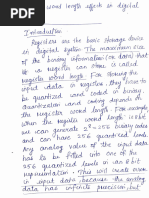 word length effects in digital
Introduction
Registers are the basic storage device
in digital system The maximum size
of the binary information (or data)
a register can store is called
register word length. For storing the
input data a register they have to
be quantized and coded in binary.
quantization and coding depends on
the register word length. For example
when the register word length is 8 bit
we can generate 2⁸ = 256 binary codes
in can generate 256 quantized levels.
Any analog value of the input data
has to be fitted into one of the
256 quantized levels in an 8 bit
representation. This will create error
in input data because the analog
data has infinite precision but